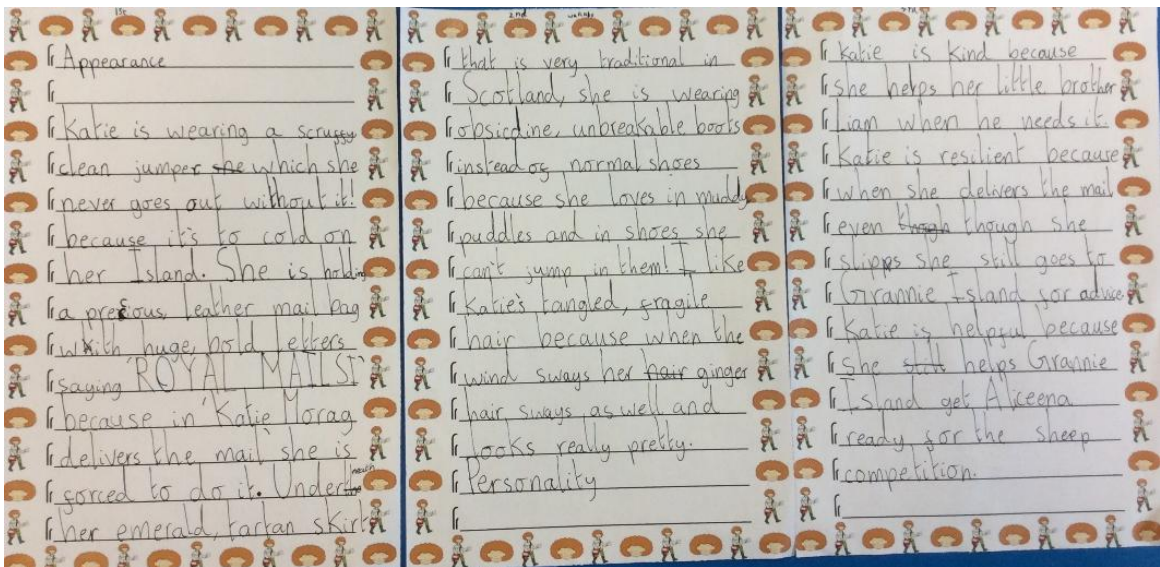 1st
Appearance
Katie is wearing a scruffy
clean jumper she which she
never goes out without it!
because it's to cold on
her Island. She is holding
a precious, leather mail bag
with huge, bold letters
saying 'ROYAL MAILS!'
because in 'Katie Morag
delivers the mail' she is
forced to do it. Underneath
her emerald, tartan skirt
2nd
that is very traditional in
Scotland, she is wearing
obsicdine, unbreakable boots
instead of normal shoes
because she loves in muddy
puddles and in shoes she
can't jump in them! I like
Katie's tangled, fragile
hair because when the
wind sways her hair ginger
hair sways as well and
looks really pretty.
Personality
Katie is kind because
she helps her little brother
Liam when he needs it.
Katie is resilient because
when she delivers the mail
even though though she
slipps she still goes to
Grannie Island for advice.
Katie is helpful because
She still helps Grannie
Island get Aliceena
ready for the sheep
competition.